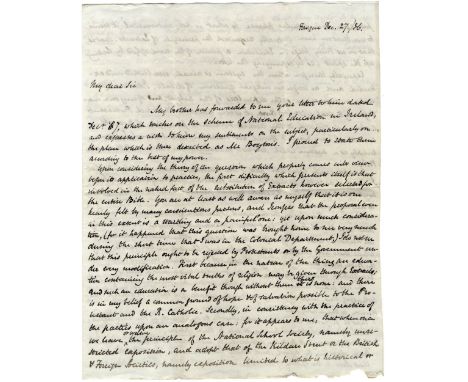 Fasque Dec. 27, /36.
My dear Sir
My brother has forwarded to me your letter to him dated
Decr 17, which touches on the Scheme of National Education in Ireland,
and expresses a wish to know my sentiments on the subject, particularly on
the plan which is then described as Mr Boyton's. I proceed to state them
according to the best of my power.
Upon considering the theory of the question which properly comes into view
before its application to practice, the first difficulty which presents itself is that
involved in the naked fact of the substitution of Extracts however selected for
the entire Bible. You are at least as well aware as myself that it is one
keenly felt by many conscientious persons, and I confess that the proposal even
in this extent is a startling and a painful one: yet upon much considera-
tion, (for it happened that this question was brought home to me very much
during the short time that I was in the Colonial Department,) I do not see
that this principle ought to be rejected by Protestants or by the Government un-
der every modification. First because in the nature of the thing an educa-
tion containing the most vital truths of religion may be given through Extracts,
and such an education is a benefit though without them there is none: and there
is in my belief a common ground of hope & of salvation possible to the Pro-
testant and the R. Catholic. Secondly, in consistency with the practice of
the parties upon an analogous case: for it appears to me, that when once
we leave the principle of the National School Society, namely unre-
stricted exposition, and adopt that of the Kildare Street or the British
& Foreign Societies, namely exposition limited to what is historical or